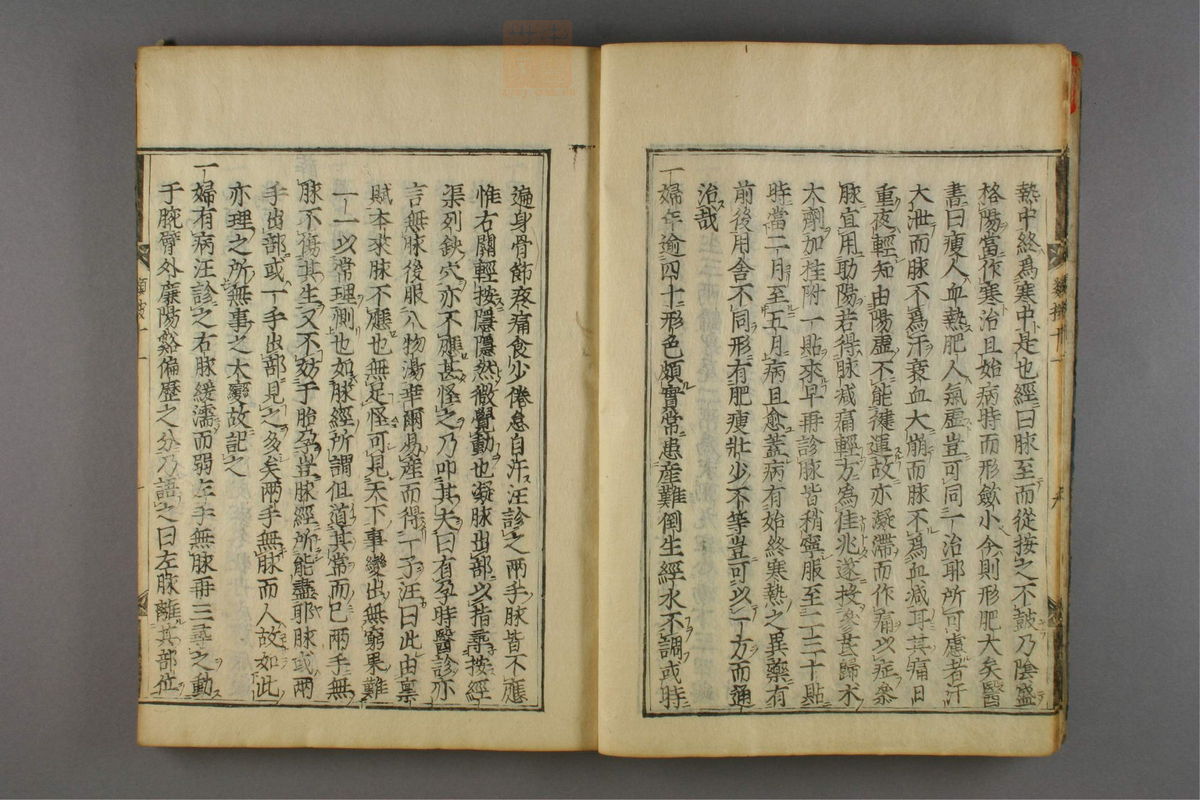 熱中終爲寒中是也經曰脉至而從按之不鼓乃陰盛
格陽當作寒治且始病時而形斂小今則形肥大矣醫
書曰瘦人血熱肥人氣虛豈可同一治耶所可慮者汗
大泄而脉不爲汗衰血大崩而脉不爲血减耳其痛日
重夜輕知由陽虛不能健運故亦凝滯而作痛以症參
脉宜用助陽若得脉减痛輕方為佳兆遂投參芪歸术
大劑加桂附一貼來早再診脉皆稍寧服至二三十貼
時當二月至五月病且愈蓋病有始終寒熱之異藥有
前後用舍不同形有肥瘦壯少不等豈可以一方而通
治哉
一婦年逾四十形色頗實常患産難倒生經水不調或時
遍身骨節疼痛食少倦怠自汗汪診之兩手脉皆不應
惟右關輕按隱隱然微覺動也疑脉出部以指尋按經
渠列缺穴亦不應甚怪之乃叩其夫曰有孕時醫診亦
言無脉後服八物湯幸爾易産而得一子汪曰此由稟
賦本來脉不應也無足怪可見天下事變出無窮果難
一一以常理測也如脉經所謂但道其常而已兩手無
脉不傷其生又不妨于胎孕豈脉經所能盡耶脉或兩
手出部或一手出部見之多矣兩手無脉而人故如此
亦理之所無事之大變故記之
一婦有病汪診之右脉緩濡而弱左手無脉再三尋之動
于腕臂外廉陽谿偏歷之分乃語之曰左脉離其部位